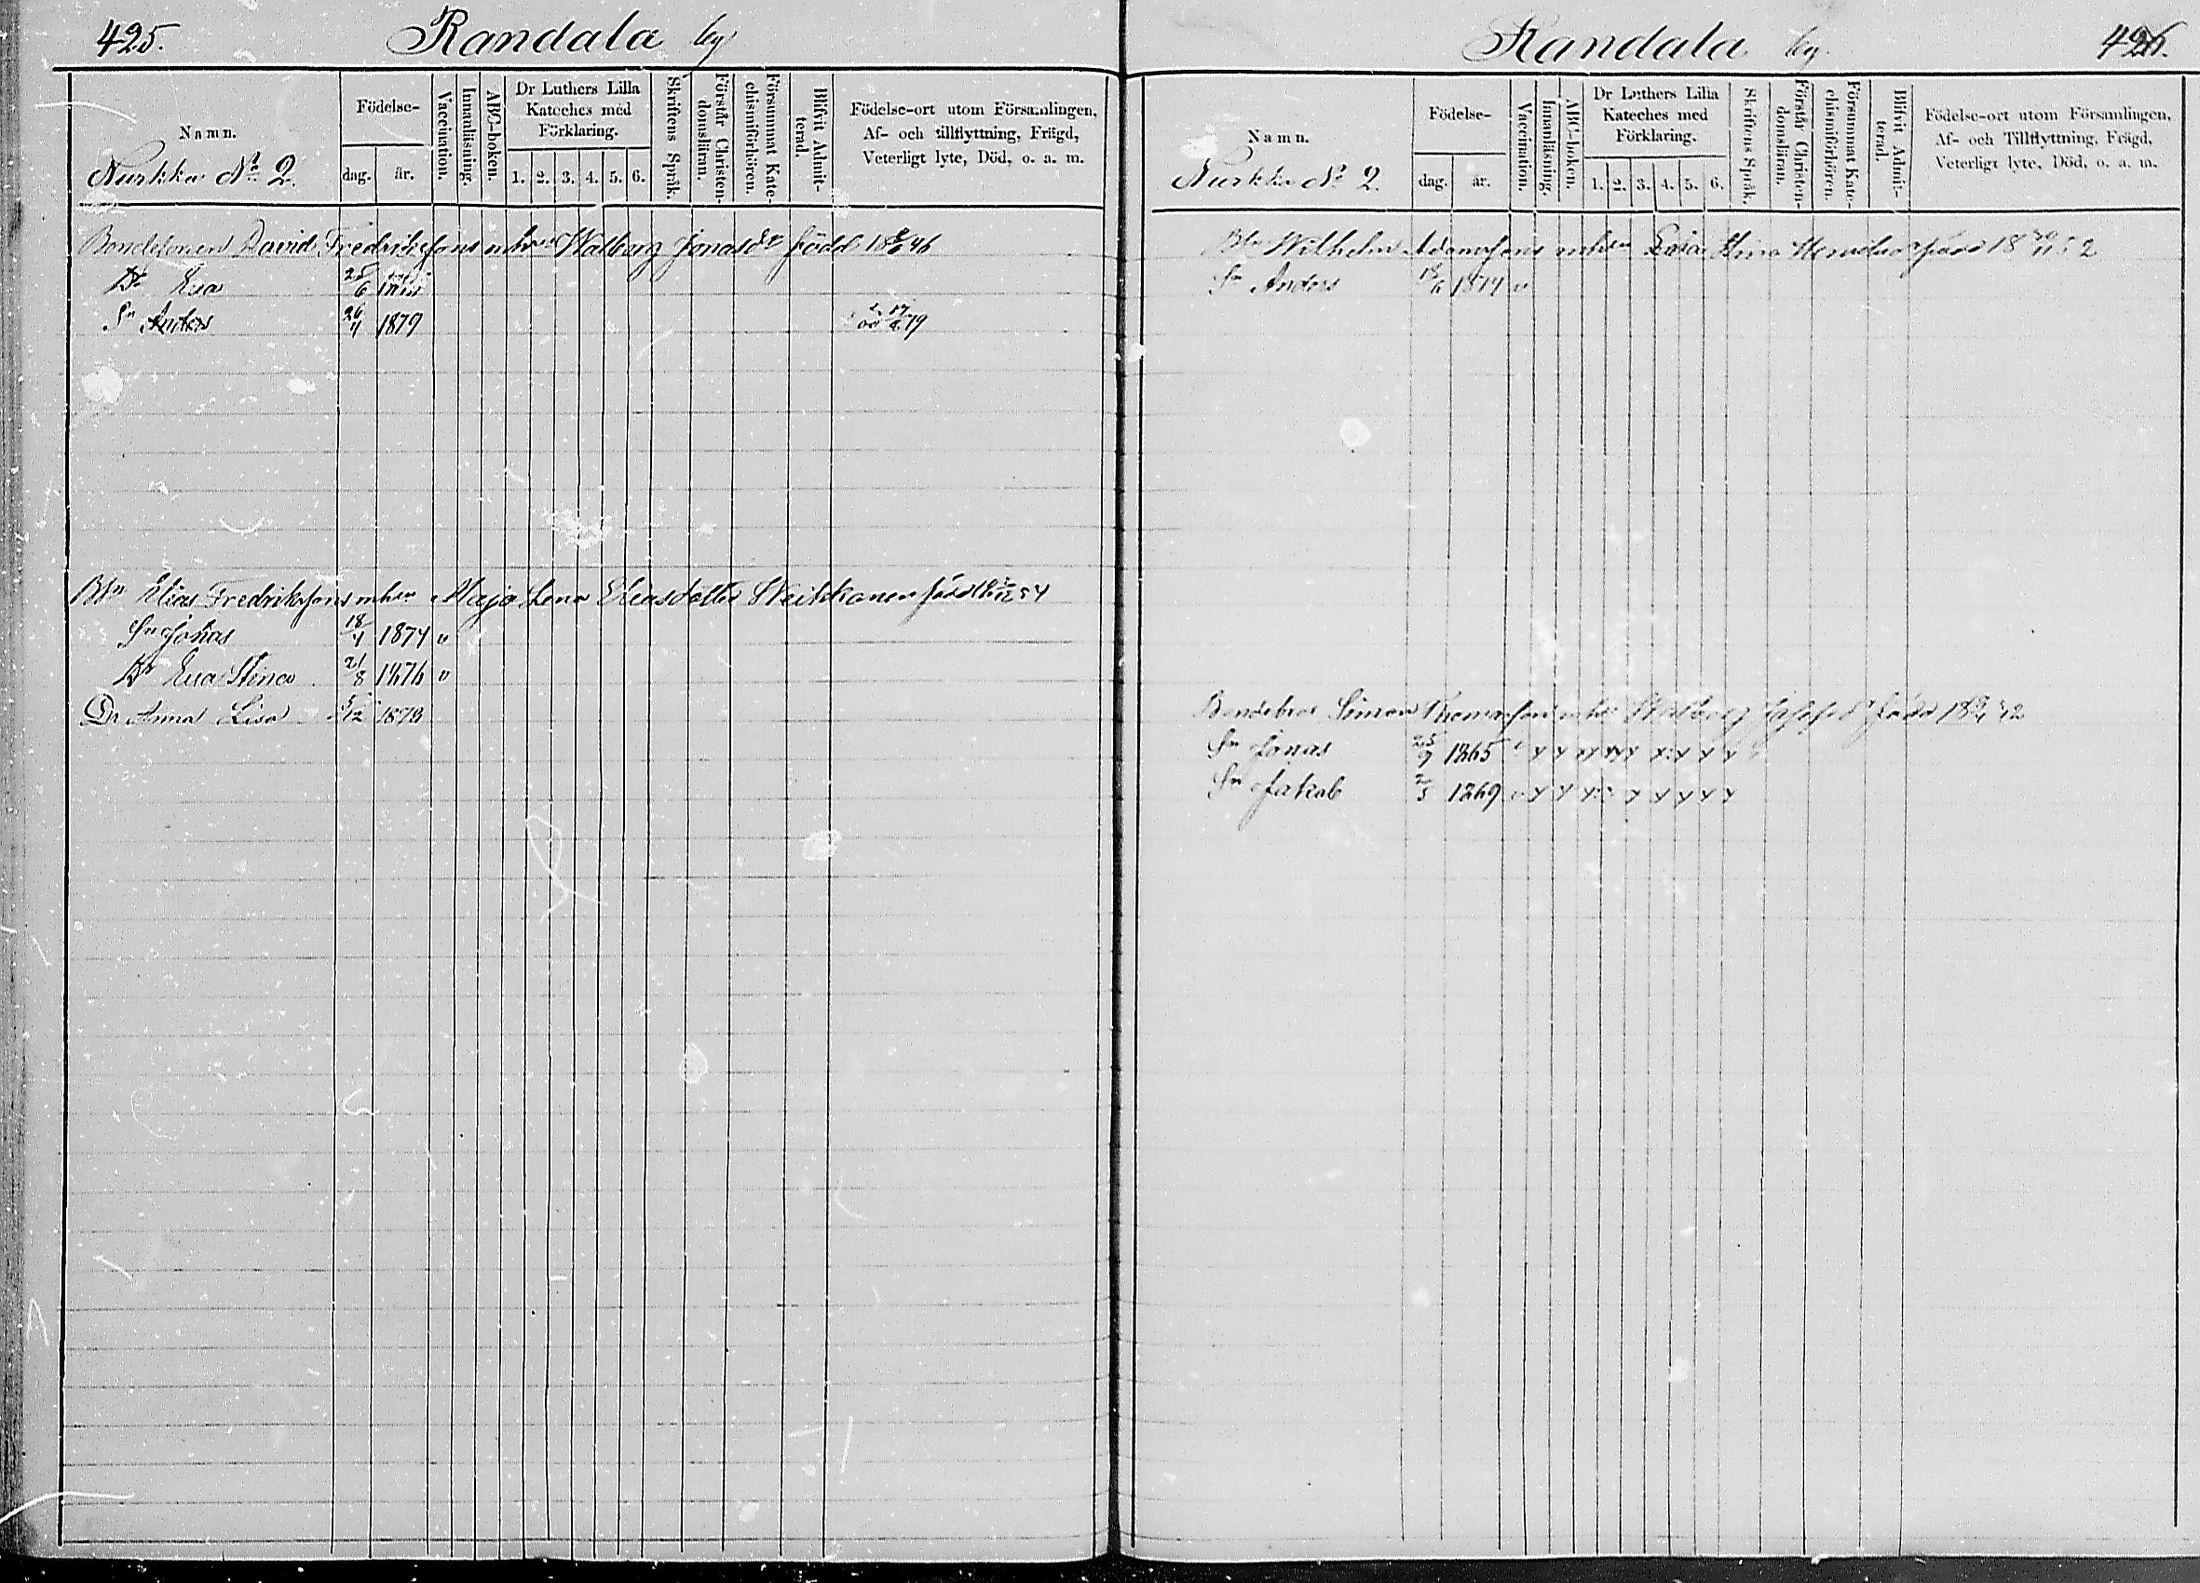 425.
Randala by
Namn.
Födelse-
dag.
år.
Vaccination.
Innanläsning.
ABC-boken.
Dr Luthers Lilla
Kateches med
Förklaring.
1. 2. 3. 4. 5. 6.
Skriftens Språk.
Förstår Christen-
domsläran.
Försummat Kate-
chismiförhören.
Blifvit Admit-
terad.
Födelse-ort utom Församlingen,
Af- och tillflyttning, Frägd,
Veterligt lyte, Död, o. a. m.
Nurkka No 2.
Bondesonen David Fredriksons mhru Walborg Jonasdr född 46
Dr Eva 25/6
Sn Anders 26/4 1879
Bsn Elias Fredriksons mhru Maja Lena Eliasdotter Veikkanen född 54
Sn Jonas 18/4 1874 v
Dr Eva Stina 21/8 1876 v
Dr Anna Lisa 1879
426.
Randala by.
Namn.
Födelse-
dag.
år.
Vaccination.
Innanläsning.
ABC-boken.
Dr Luthers Lilla
Kateches med
Förklaring.
1. 2. 3. 4. 5. 6.
Skriftens Språk.
Förstår Christen-
domsläran.
Försummat Kate-
chismiförhören.
Blifvit Admit-
terad.
Födelse-ort utom Församlingen,
Af- och Tillflyttning, Frägd,
Veterligt lyte, Död, o. a. m.
Nurkka No 2.
Bsn Wilhelm Adamsons mhru Stina född 52
Sn Anders 1874 v
Bondebror Simon Thomasons mhru Walborg född 42
Sn Jonas 25/9 1865
Sn Jakob 2/3 1869